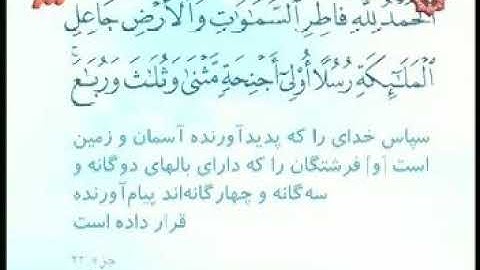 ٱلْحَمْدُ لِلَّهِ فَاطِرِ ٱلسَّمَٰوَٰتِ وَٱلْأَرْضِ جَاعِلِ
ٱلْمَلَٰٓئِكَةِ رُسُلًا أُو۟لِىٓ أَجْنِحَةٍ مَّثْنَىٰ وَثُلَٰثَ وَرُبَٰعَ ۚ
سپاس خدای را که پدیدآورنده آسمان و زمین
است [و] فرشتگان را که دارای بالهای دوگانه و
سه‌گانه و چهارگانه‌اند پیام‌آورنده
قرار داده است
جزء ۲۲